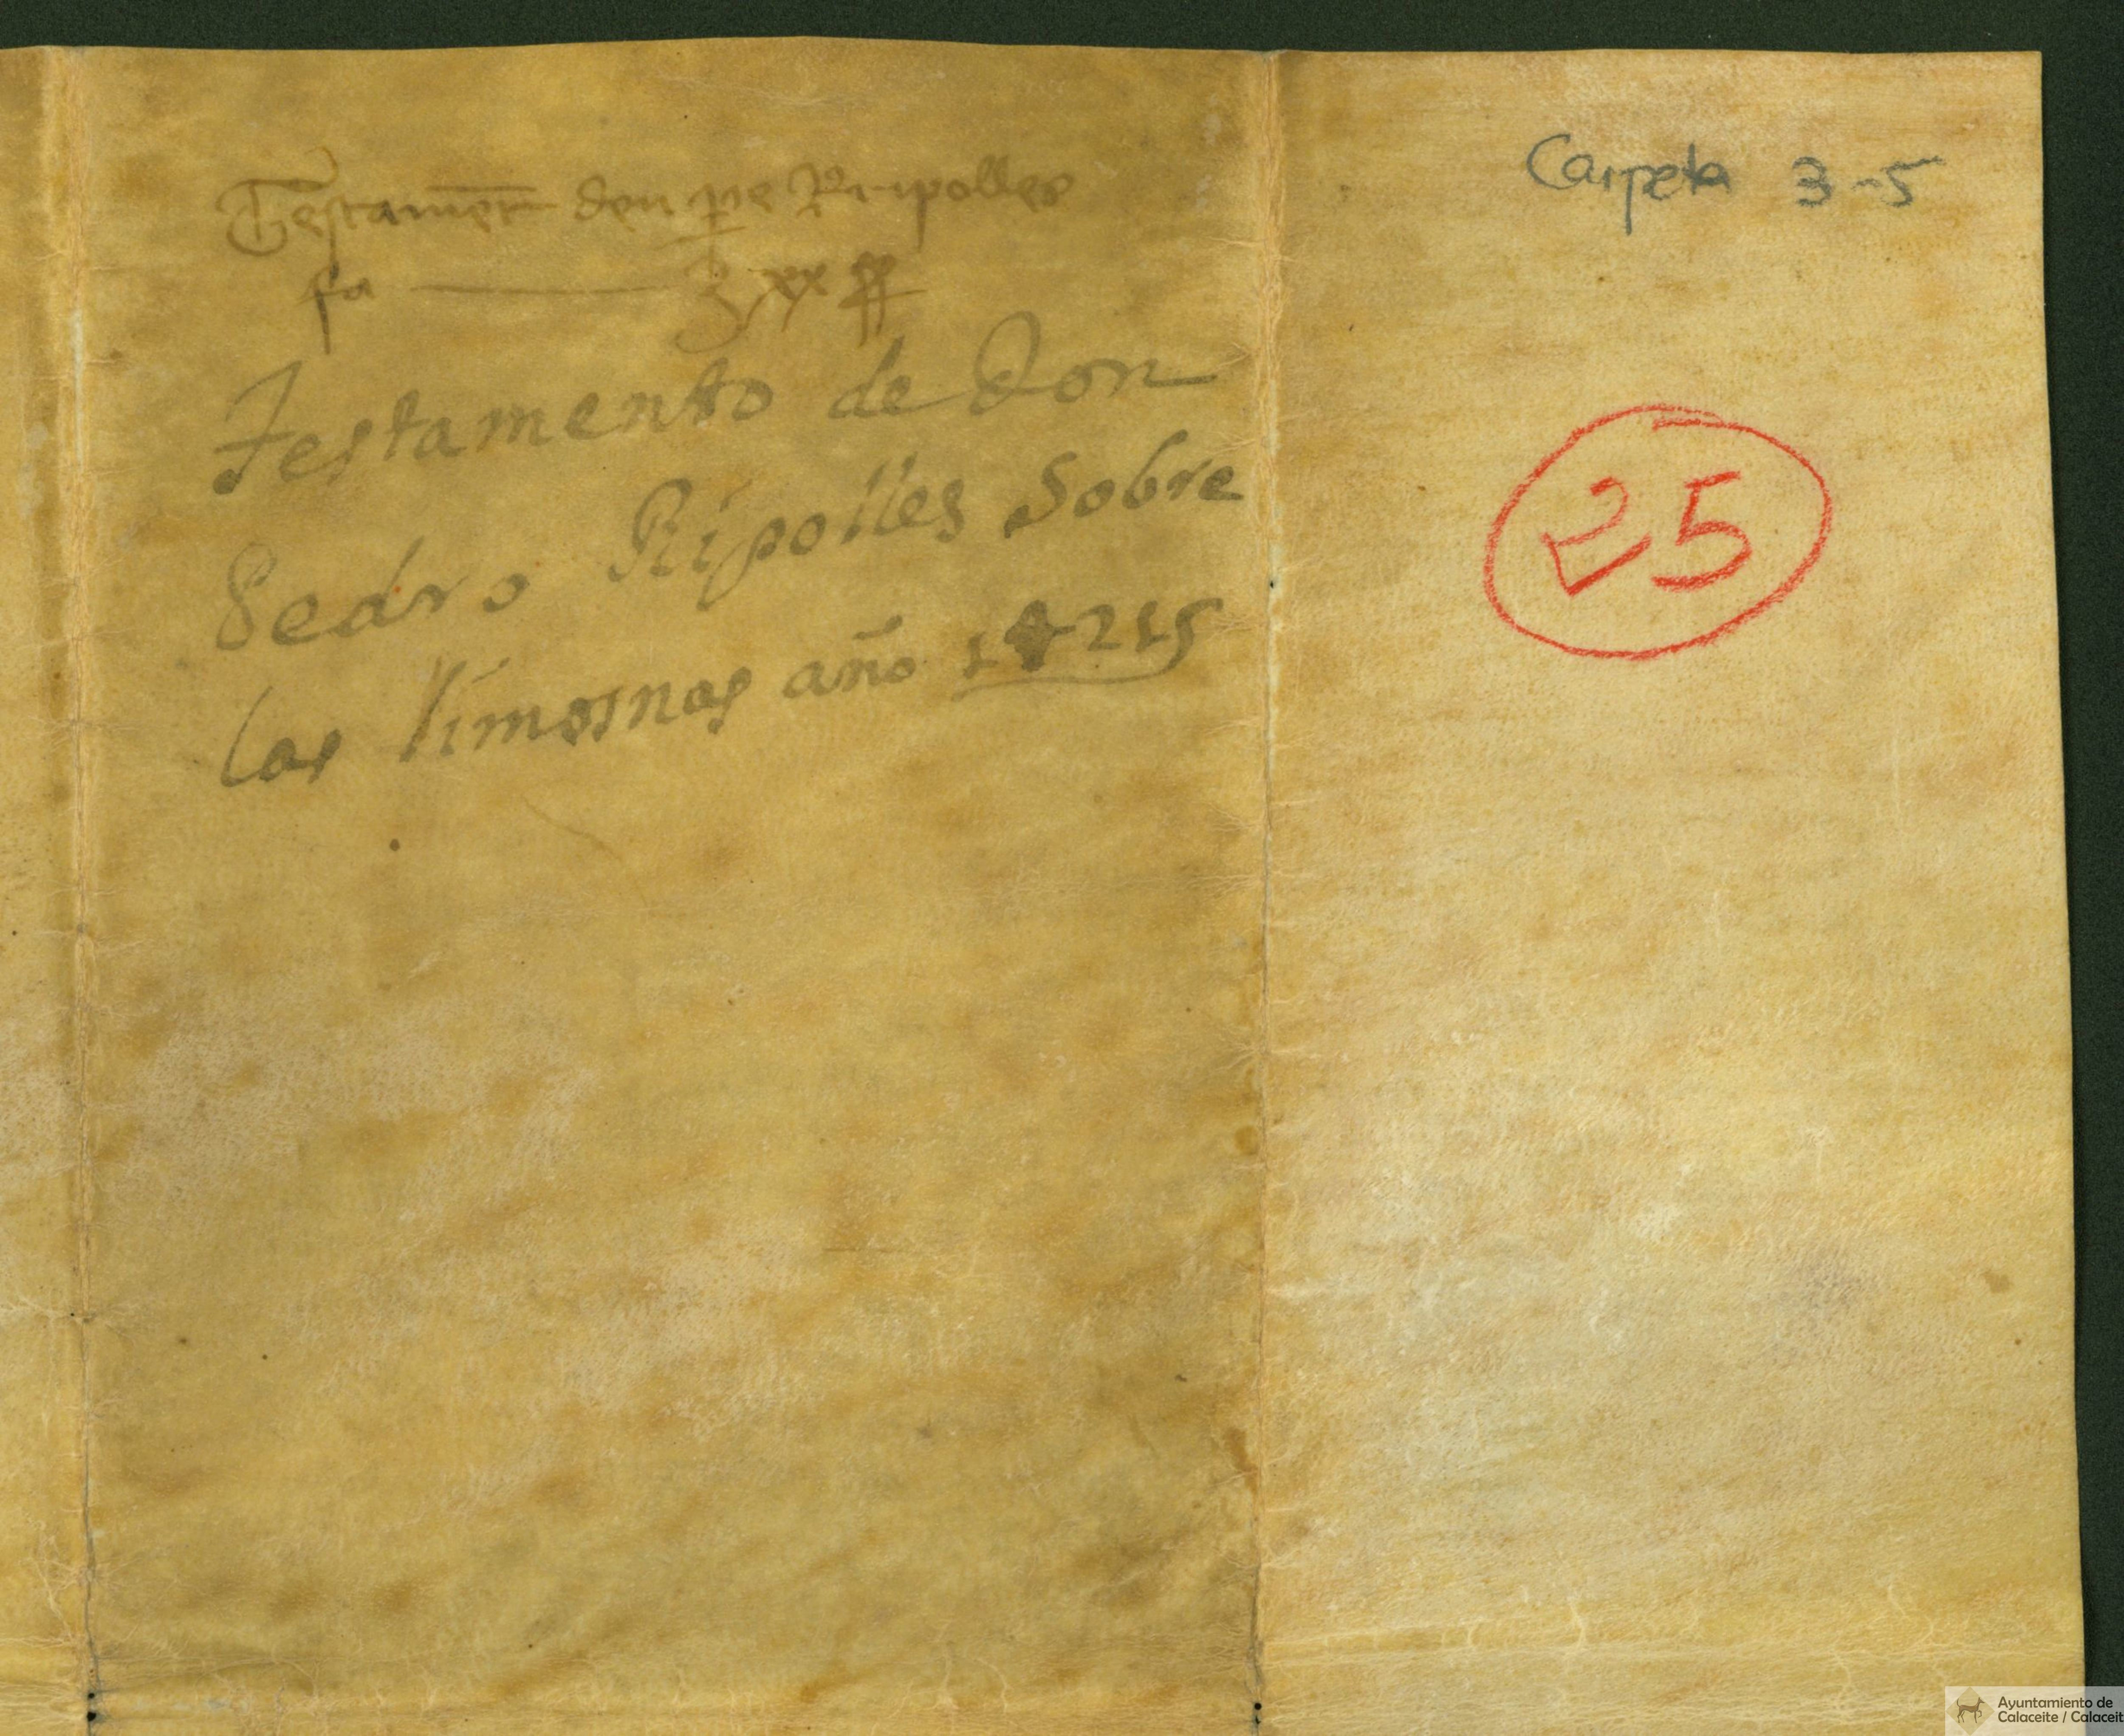 Testament den pe Ripolles
fa
Testamento de Don
Pedro Ripolles Sobre
las limosnas año 1215
Carpeta 3-5
25
Ayuntamiento de
Calaceite / Calaceit